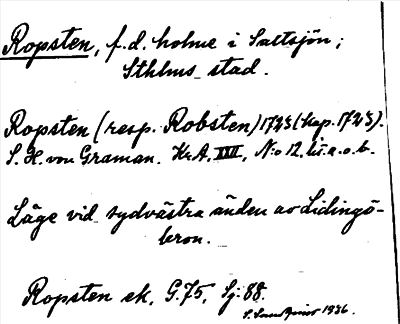 Ropsten, f.d. holme i Saltsjön;
Sthlms stad.
Ropsten (resp. Robsten) 1723 (Kop. 1723).
S. H. von Graman. Kr.A. XXII, No 12. lit. a. o. b.
Läge vid sydvästra änden av Lidingö-
bron.
Ropsten ek, G.75, Sj: 88.
1936.